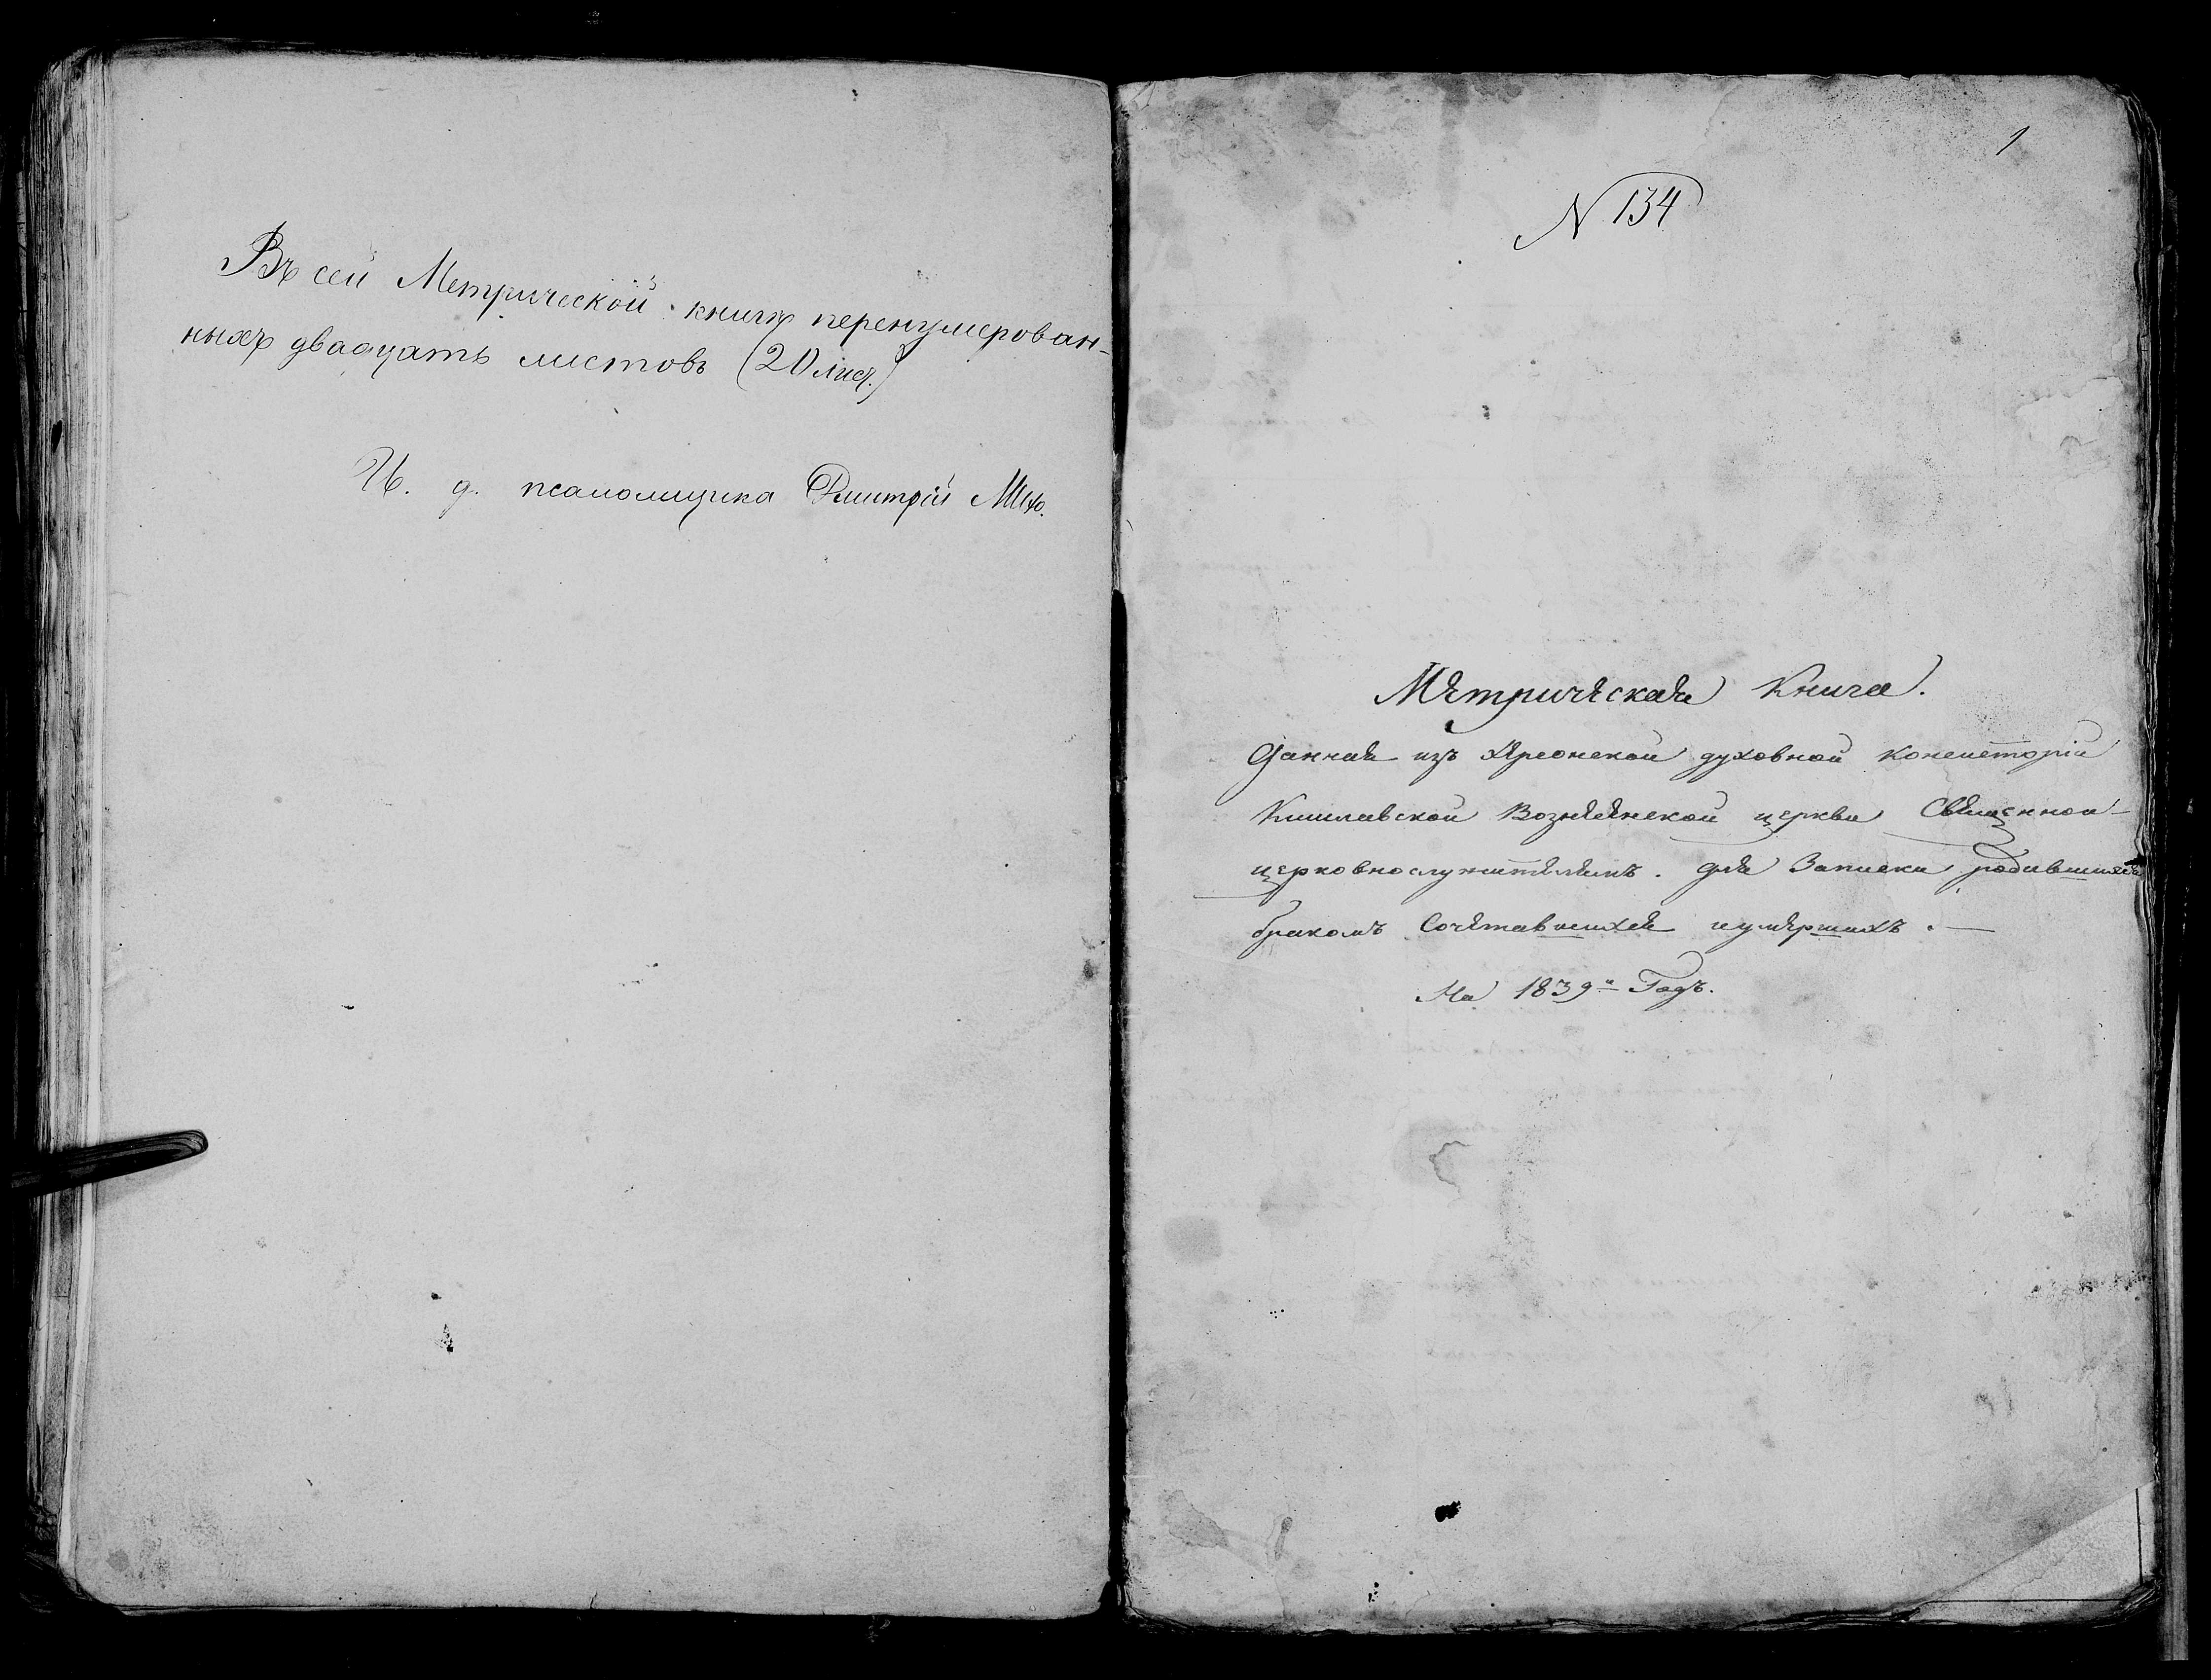 Въ сей Метрической книгѣ перенумерован-
ныхъ двадцать листовъ (20 лист.)
И. д. псаломщика Дмитрій
1
N 134
Метрическая Книга.
Данная изъ Херсонской духовной консисторіи
Кишлавской Вознесенской церкви Священной-
церковнослужителямъ. для Записки родившихся
бракомъ Сочетавшихся и умершихъ. —
На 1839й Годъ.